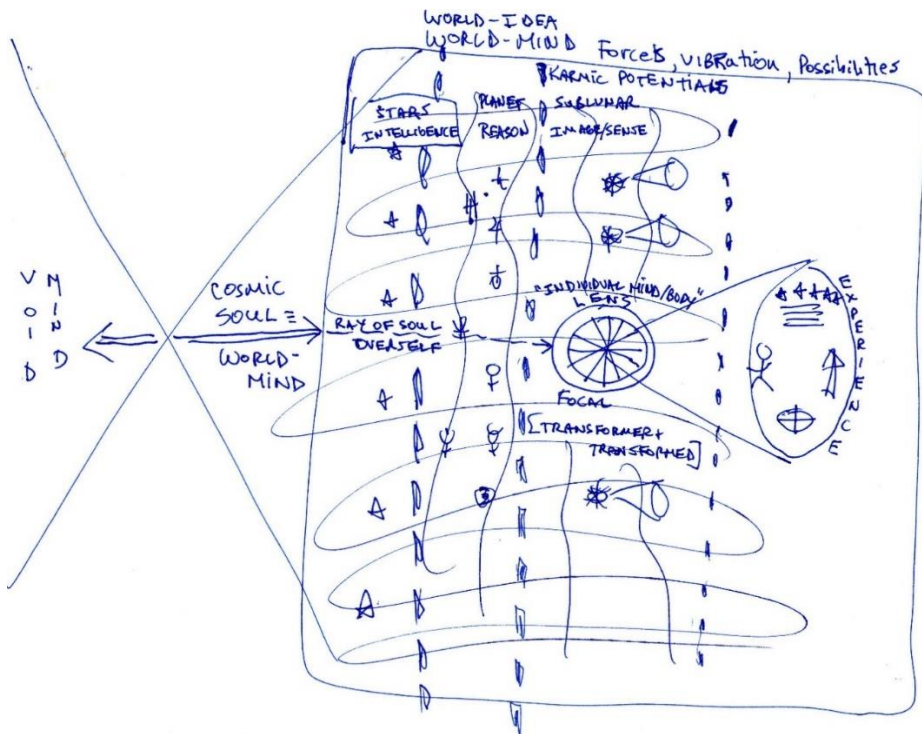 WORLD-IDEA
WORLD-MIND Forces, VIBRATION, Possibilities
KARMIC POTENTIALS
STARS
INTELLIGENCE
PLANET
REASON
SUBLUNAR
IMAGE/SENSE
VOID
MIND
COSMIC
SOUL =
WORLD-
MIND
RAY OF SOUL
OVERSELF
"INDIVIDUAL MIND/BODY"
LENS
FOCAL
[TRANSFORMER +
TRANSFORMED]
EXPERIENCE